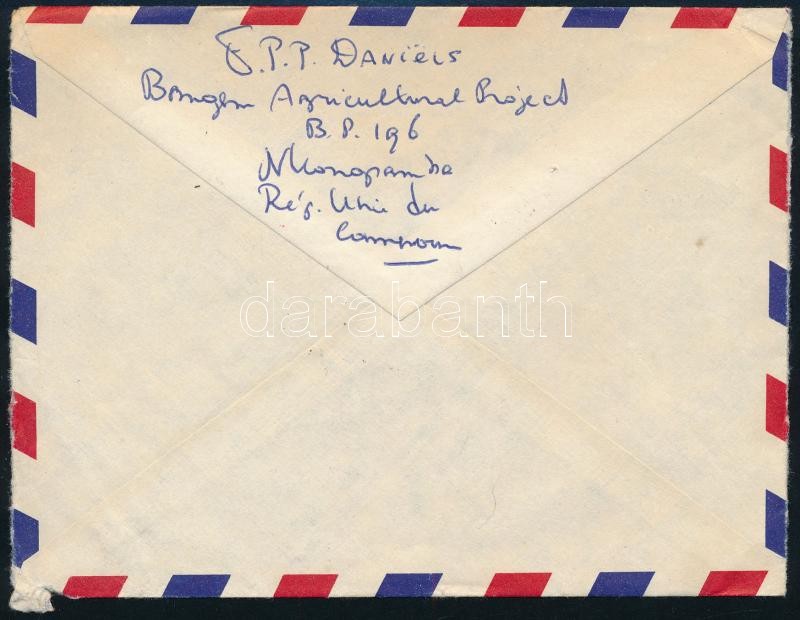 F.P.P. DANIËLS
Bangem Agricultural Project
B.P. 196
Nkongsamba
Rép. Unie du
Cameroun
darabanth